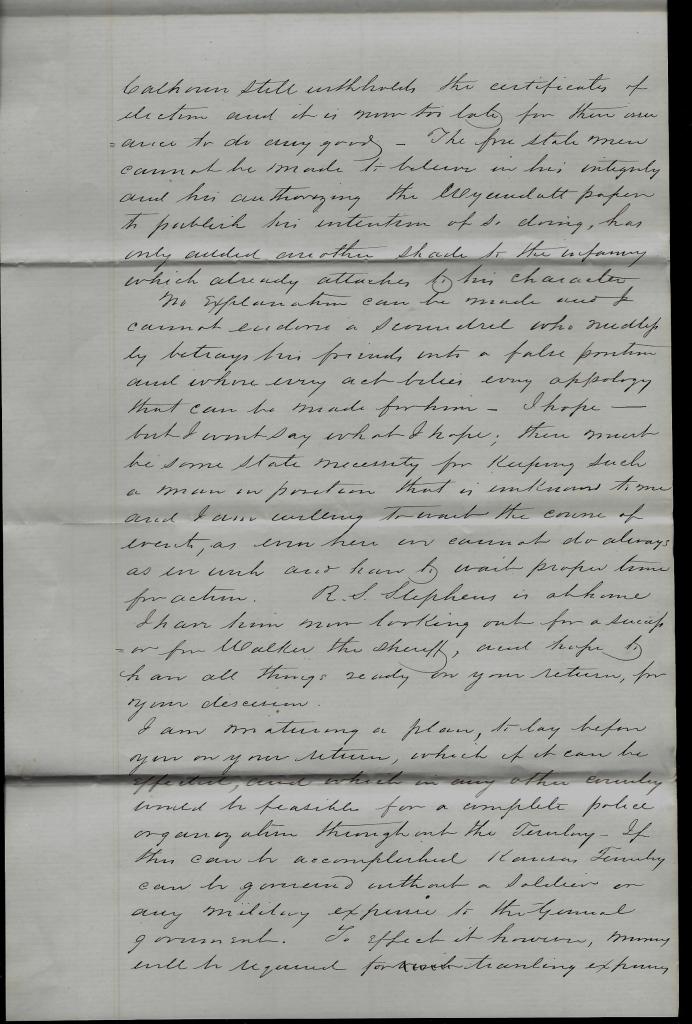 Calhoun still withholds the certificates of
election and it is now too late for their issu
=ance to do any good - The free state men
cannot be made to believe in his integrity
and his authorizing the Wyandott paper
to publish his intention of so doing, has
only added another shade to the infamy
which already attaches to his character
No Explanation can be made and I
cannot endorse a scoundrel who needless
ly betrays his friends into a false position
and whose every act belies every appology
that can be made for him - I hope -
but I wont say what I hope; there must
be some state necessity for keeping such
a man in position that is unknown to me
and I am willing to wait the course of
events, as even here we cannot do always
as we wish and have to wait proper time
for action. R. S. Stephens is at home
I have him now looking out for a success
=or for Walker the sheriff, and hope to
have all things ready on your return, for
your descision.
I am maturing a plan, to lay before
you on your return, which if it can be
effected, and which in any other country
would be feasible for a complete police
organization throughout the Territory - If
this can be accomplished Kansas Territory
can be governed without a soldier or
any military expense to the General
government. To effect it however, money
will be required for travling expenses